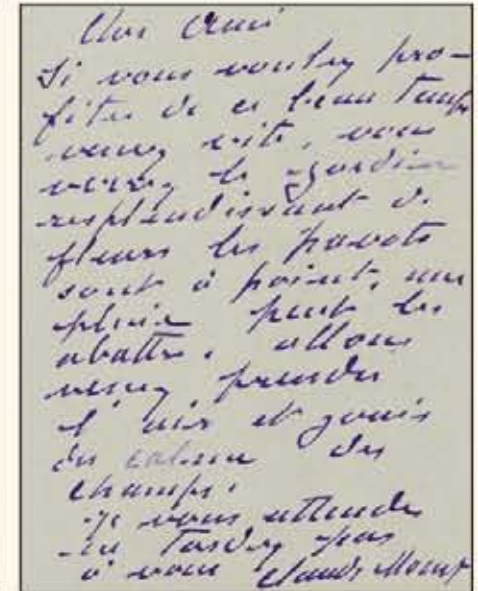 Cher Ami
Si vous voulez pro-
fiter de ce beau temps
venez vite, vous
verrez le jardin
resplendissant de
fleurs les pavots
sont à point, une
pluie peut les
abattre. allons
venez prendre
l'air et jouir
du calme des
champs.
je vous attends
ne tardez pas
à vous Claude Monet